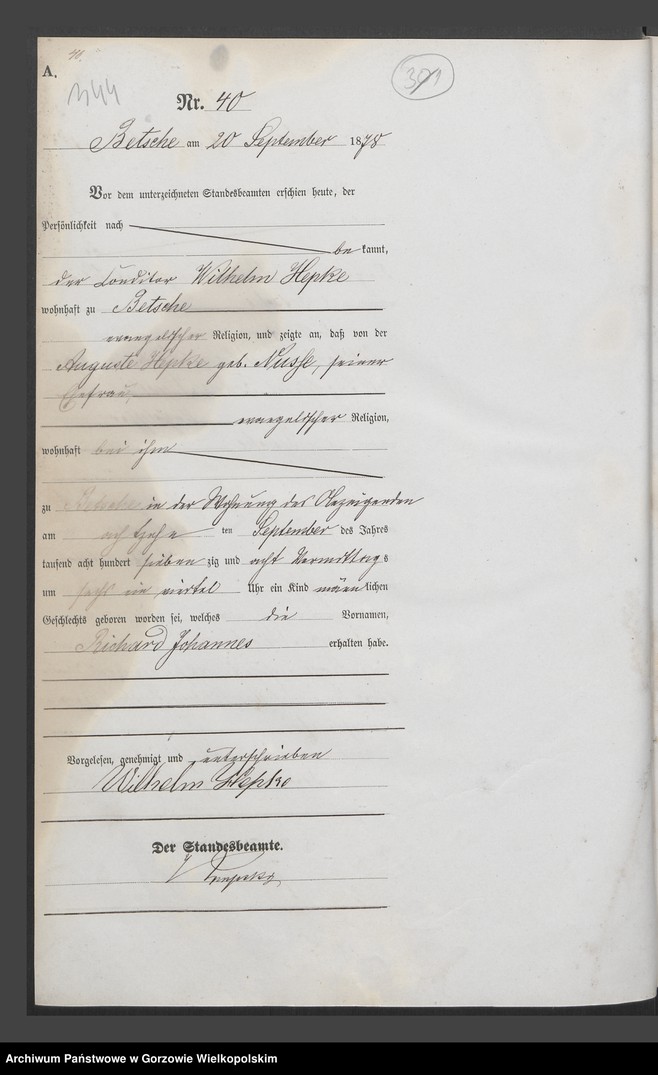 40.
A.
344
301
Nr. 40
Betsche am 20 September 1878
Vor dem unterzeichneten Standesbeamten erschien heute, der
Persönlichkeit nach
be kannt,
der Conditor Wilhelm Hepke
wohnhaft zu Betsche
evangelischer Religion, und zeigte an, daß von der
Auguste Hepke geb. Nusse, seiner
Ehefrau,
evangelischer Religion,
wohnhaft bei ihm
zu Betsche in der Wohnung des Anzeigenden
am achtzehn ten September des Jahres
tausend acht hundert sieben zig und acht Vormittags
um sechs ein viertel Uhr ein Kind männ lichen
Geschlechts geboren worden sei, welches die Vornamen,
Richard Johannes erhalten habe.
Vorgelesen, genehmigt und unterschrieben
Wilhelm Hepke
Der Standesbeamte.
Archiwum Państwowe w Gorzowie Wielkopolskim